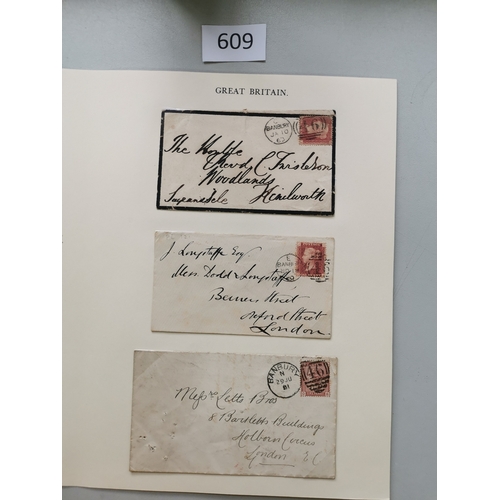 609
GREAT BRITAIN.
BANBURY
The Honble
Revd C
Woodlands
Kenilworth
E
J. Longstaffe Esq.
Messrs Dodd & Longstaffe
Berners Street
Oxford Street
London
BANBURY
N
29 JU
81
Messrs Letts Bros
8 Bartletts Buildings
Holborn Circus
London E.C